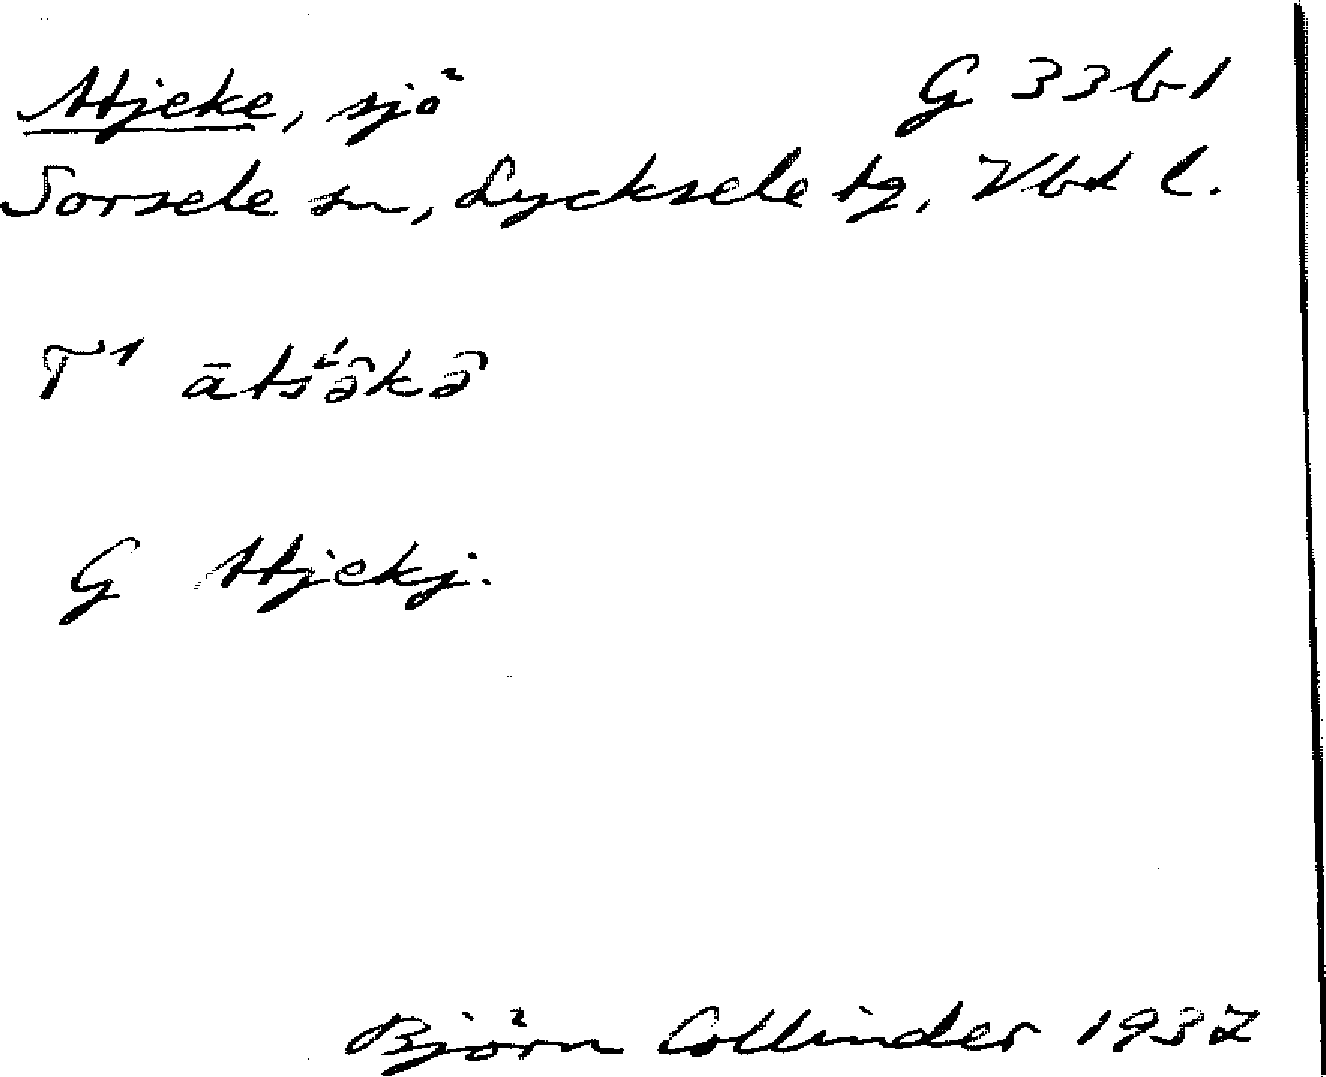 Atjeke, sjö G 33 b 1
Sorsele sn, Lycksele tg, Vbd l.
T¹ āts̀́ə̑kə̑
G Atjekj.
Björn Collinder 1937